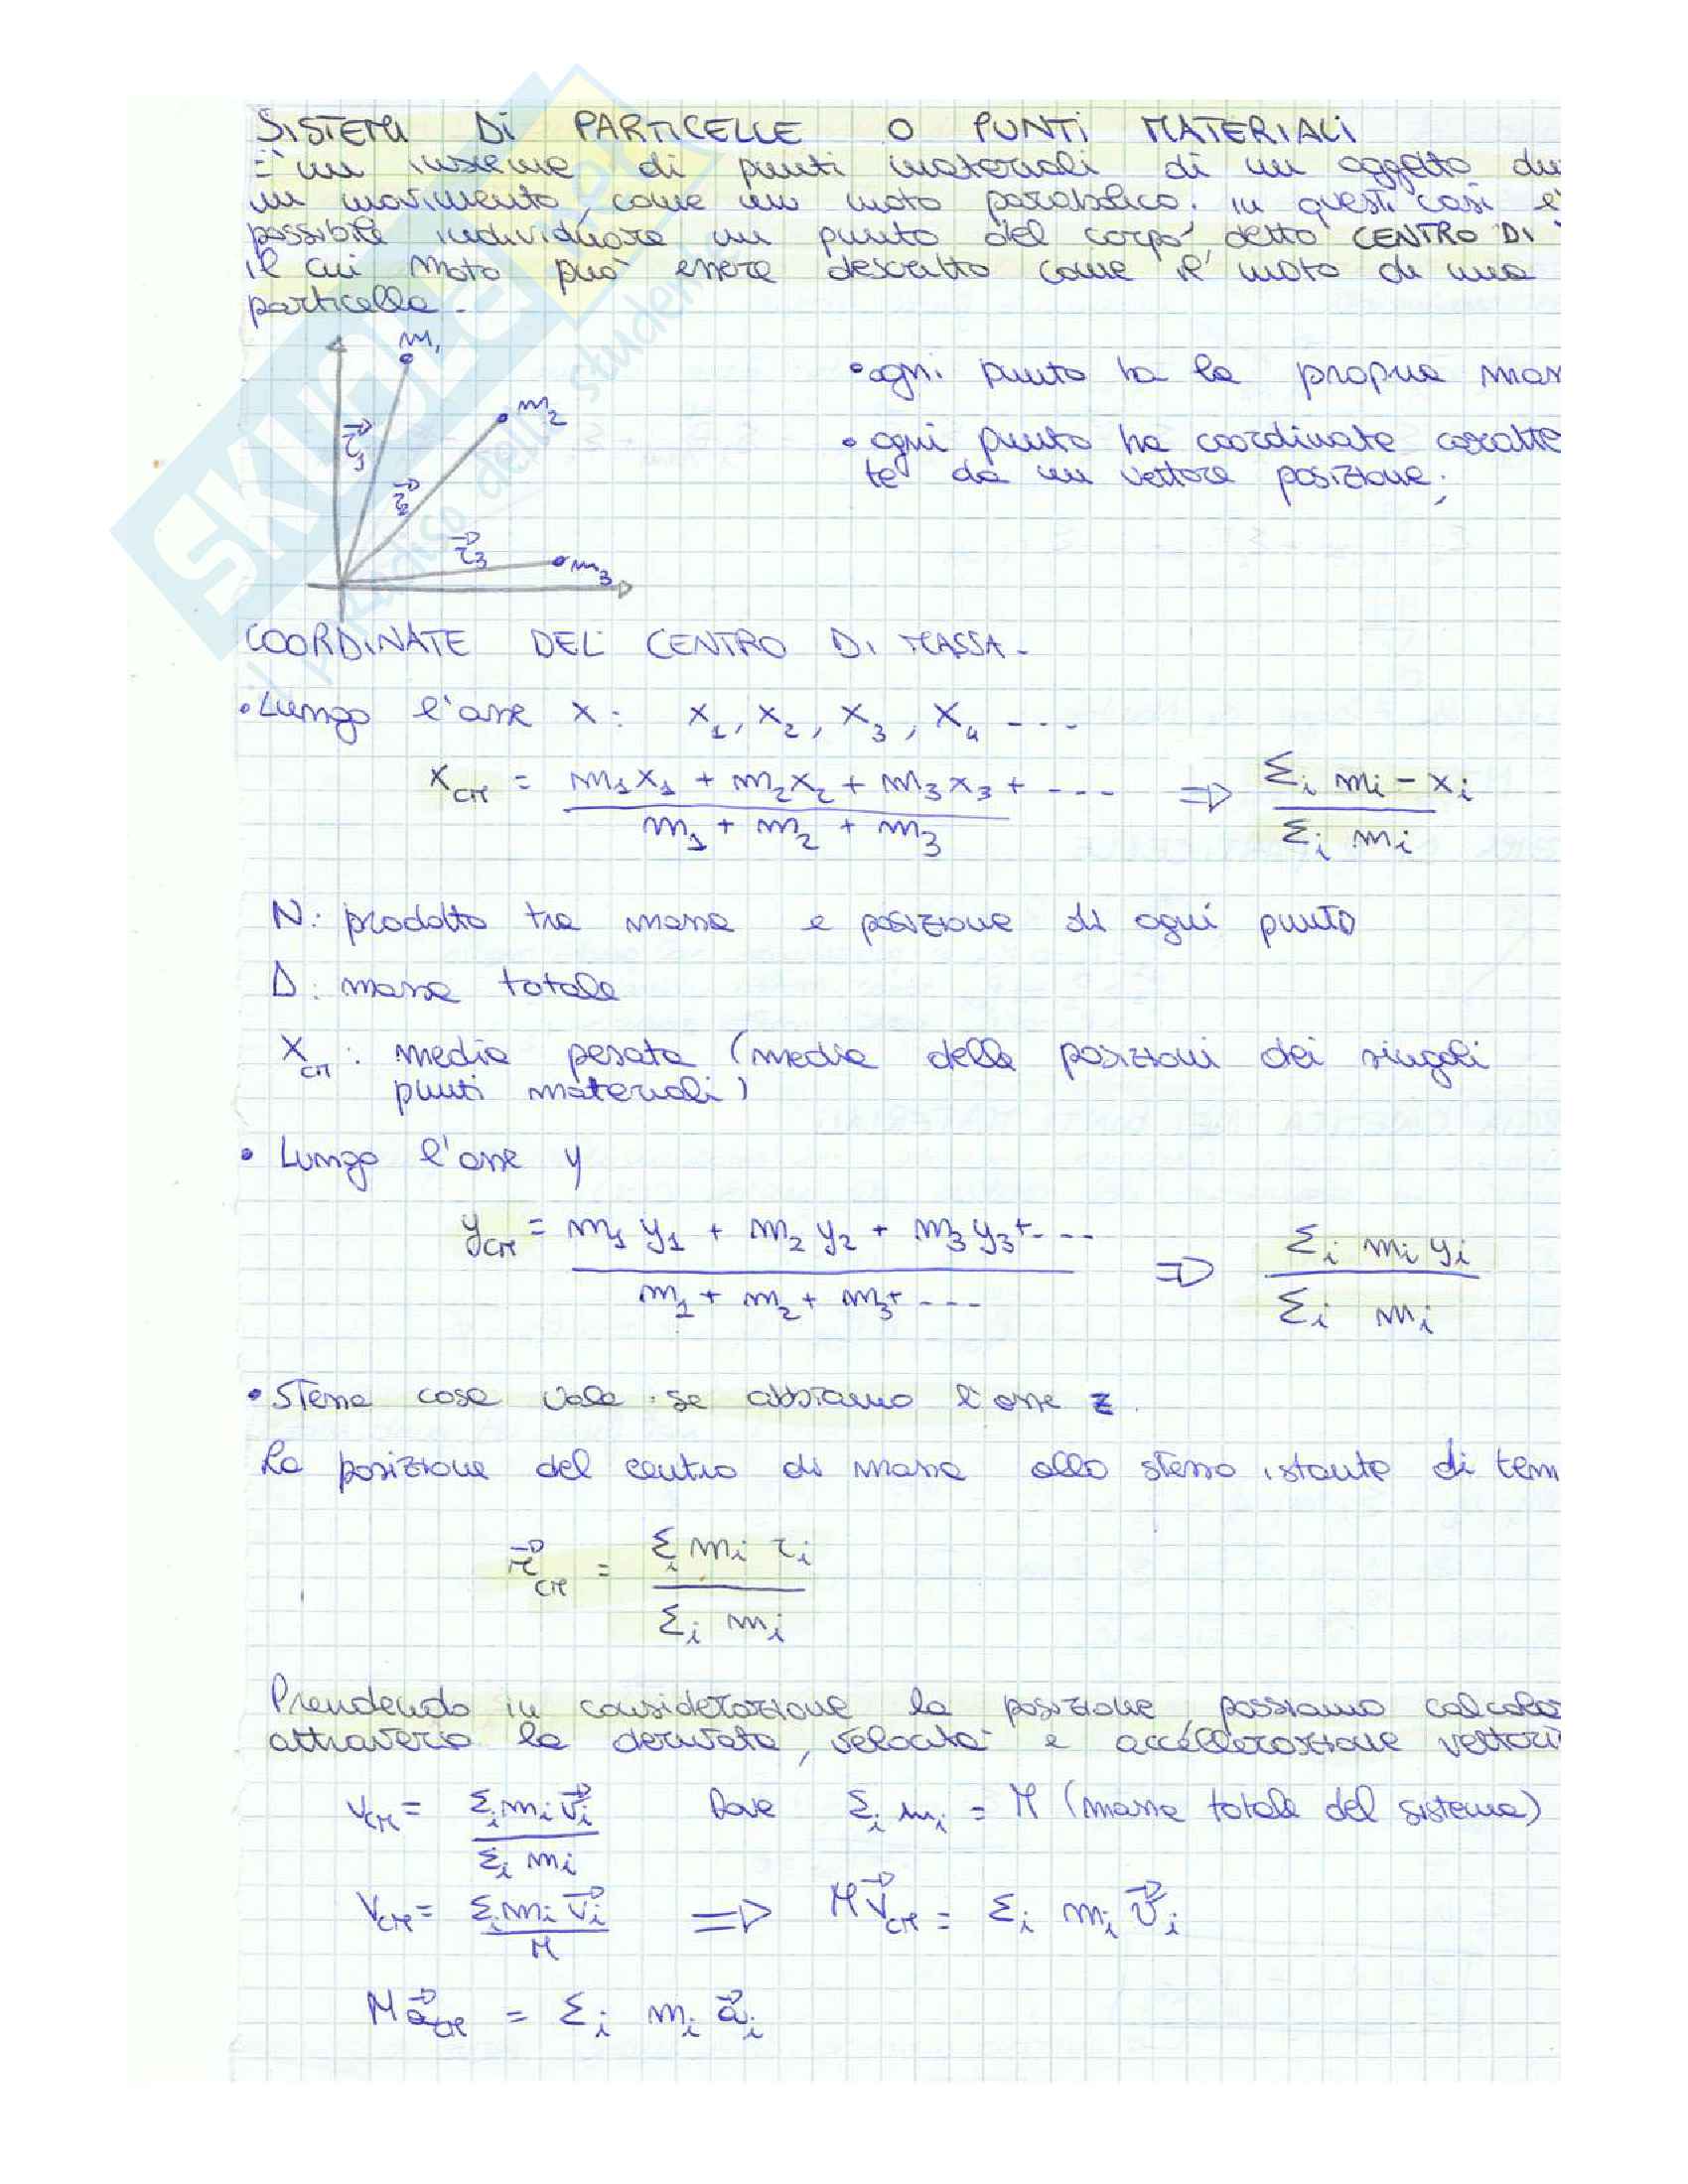 SISTEMI DI PARTICELLE O PUNTI MATERIALI
È un insieme di punti materiali di un oggetto du
in movimento, come un moto parabolico. in questi casi è
possibile individuare un punto del corpo, detto CENTRO DI
il cui moto può essere descritto come il moto di una
particella.
m₁
m₂
m₃
r⃗₁
r⃗₂
r⃗₃
• ogni punto ha la propria mas
• ogni punto ha coordinate caratte
te da un vettore posizione;
COORDINATE DEL CENTRO DI MASSA.
• Lungo l'asse x: x₁, x₂, x₃, x₄ ----
x_CM = (m₁x₁ + m₂x₂ + m₃x₃ + ----) / (m₁ + m₂ + m₃) ⇒ (Σᵢ mᵢ - xᵢ) / (Σᵢ mᵢ)
N: prodotto tra massa e posizione di ogni punto
D: massa totale
x_CM: media pesata (media delle posizioni dei singoli
punti materiali)
• Lungo l'asse y
y_CM = (m₁y₁ + m₂y₂ + m₃y₃+----) / (m₁ + m₂ + m₃+----) ⇒ (Σᵢ mᵢ yᵢ) / (Σᵢ mᵢ)
• Stessa cosa vale se abbiamo l'asse z.
La posizione del centro di massa allo stesso istante di tem
r⃗_CM = (Σᵢ mᵢ rᵢ) / (Σᵢ mᵢ)
Prendendo in considerazione la posizione, possiamo calcola
attraverso la derivata, velocità e accellerazione vettori
v_CM = (Σᵢ mᵢ v⃗ᵢ) / (Σᵢ mᵢ) Dove Σᵢ mᵢ = M (massa totale del sistema)
V_CM = (Σᵢ mᵢ v⃗ᵢ) / M ⇒ M V⃗_CM = Σᵢ mᵢ v⃗ᵢ
M a⃗_CM = Σᵢ mᵢ a⃗ᵢ
SKUOLA.net
il paradiso dello studente